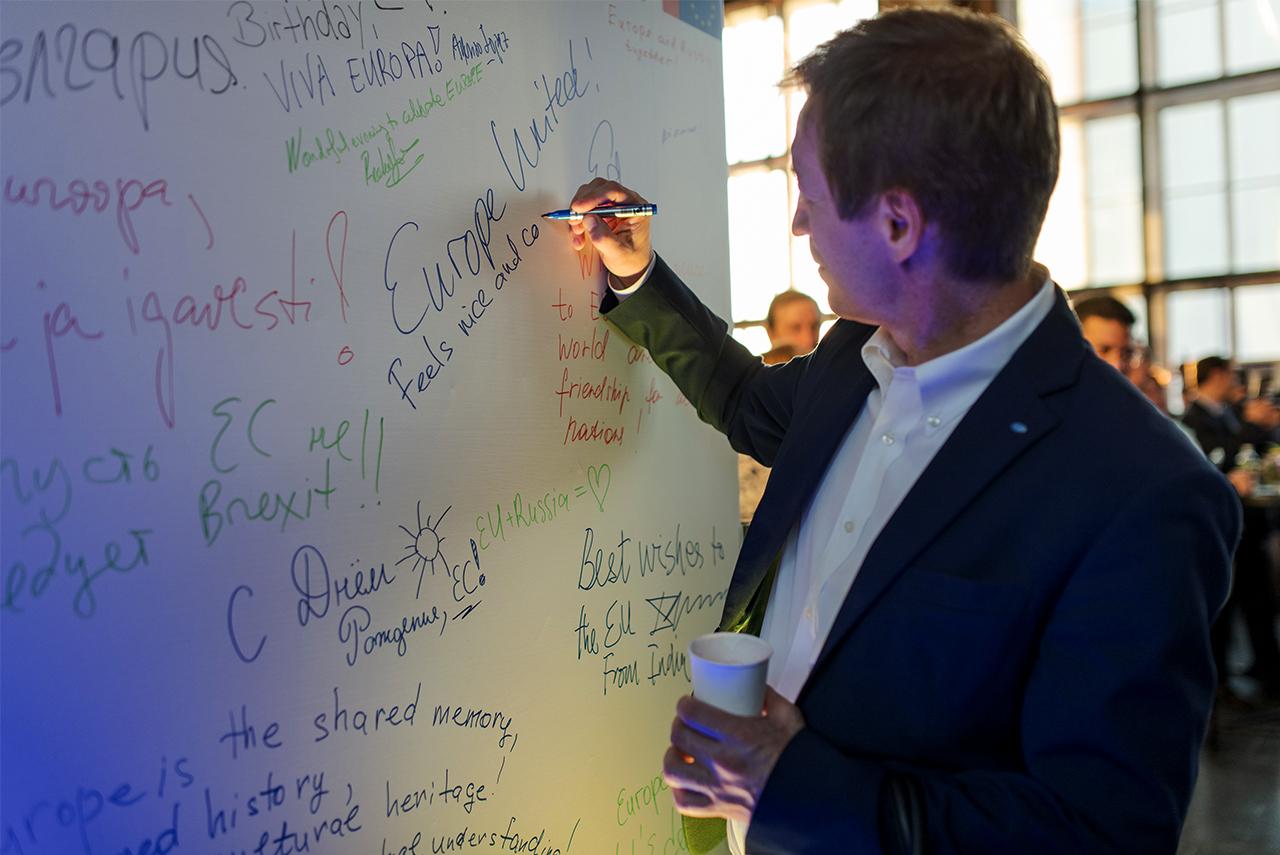 Birthday!
VIVA EUROPA!
Wonderful evening to celebrate EUROPE
Europe and Russia
together!
Europe United!
Feels nice and co
Ed
ja igavesti!
to E
World
friendship
nations!
пусть ЕС не!!
Brexit!!
EU+Russia=♡
С Днём
Рождения, ЕС!
Best wishes to
the EU
From India
Europe is the shared memory,
history,
cultural heritage!
understanding!
Europe